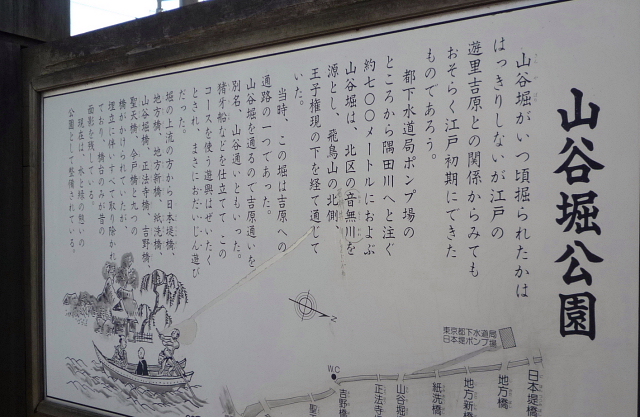 山谷堀公園
山谷堀がいつ頃掘られたかは
はっきりしないが江戸の
遊里吉原との関係からみても
おそらく江戸初期にできた
ものであろう。
都下水道局ポンプ場の
ところから隅田川へと注ぐ
約七〇〇メートルにおよぶ
山谷堀は、北区の音無川を
源とし、飛鳥山の北側、
王子権現の下を経て通じて
いた。
当時、この堀は吉原への
通路の一つであった。
山谷堀を通るので吉原通いを
別名、山谷通いともいった。
猪牙船などを仕立てて この
コースを使う遊興はぜいたく
とされ、まさにおだいじん遊び
だった。
堀の上流の方から日本堤橋、
地方橋、地方新橋、紙洗橋、
山谷堀橋、正法寺橋、吉野橋
聖天橋、今戸橋と九つの
橋がかけられていたが
埋立に伴いすべて取り除かれ
ており、橋台のみが昔の
面影を残している。
現在は、水と緑の憩いの
公園として整備されている。
東京都下水道局
日本堤ポンプ場
日本堤橋
地方橋
地方新橋
紙洗橋
山谷堀
正法寺
吉野橋
W.C
聖
N